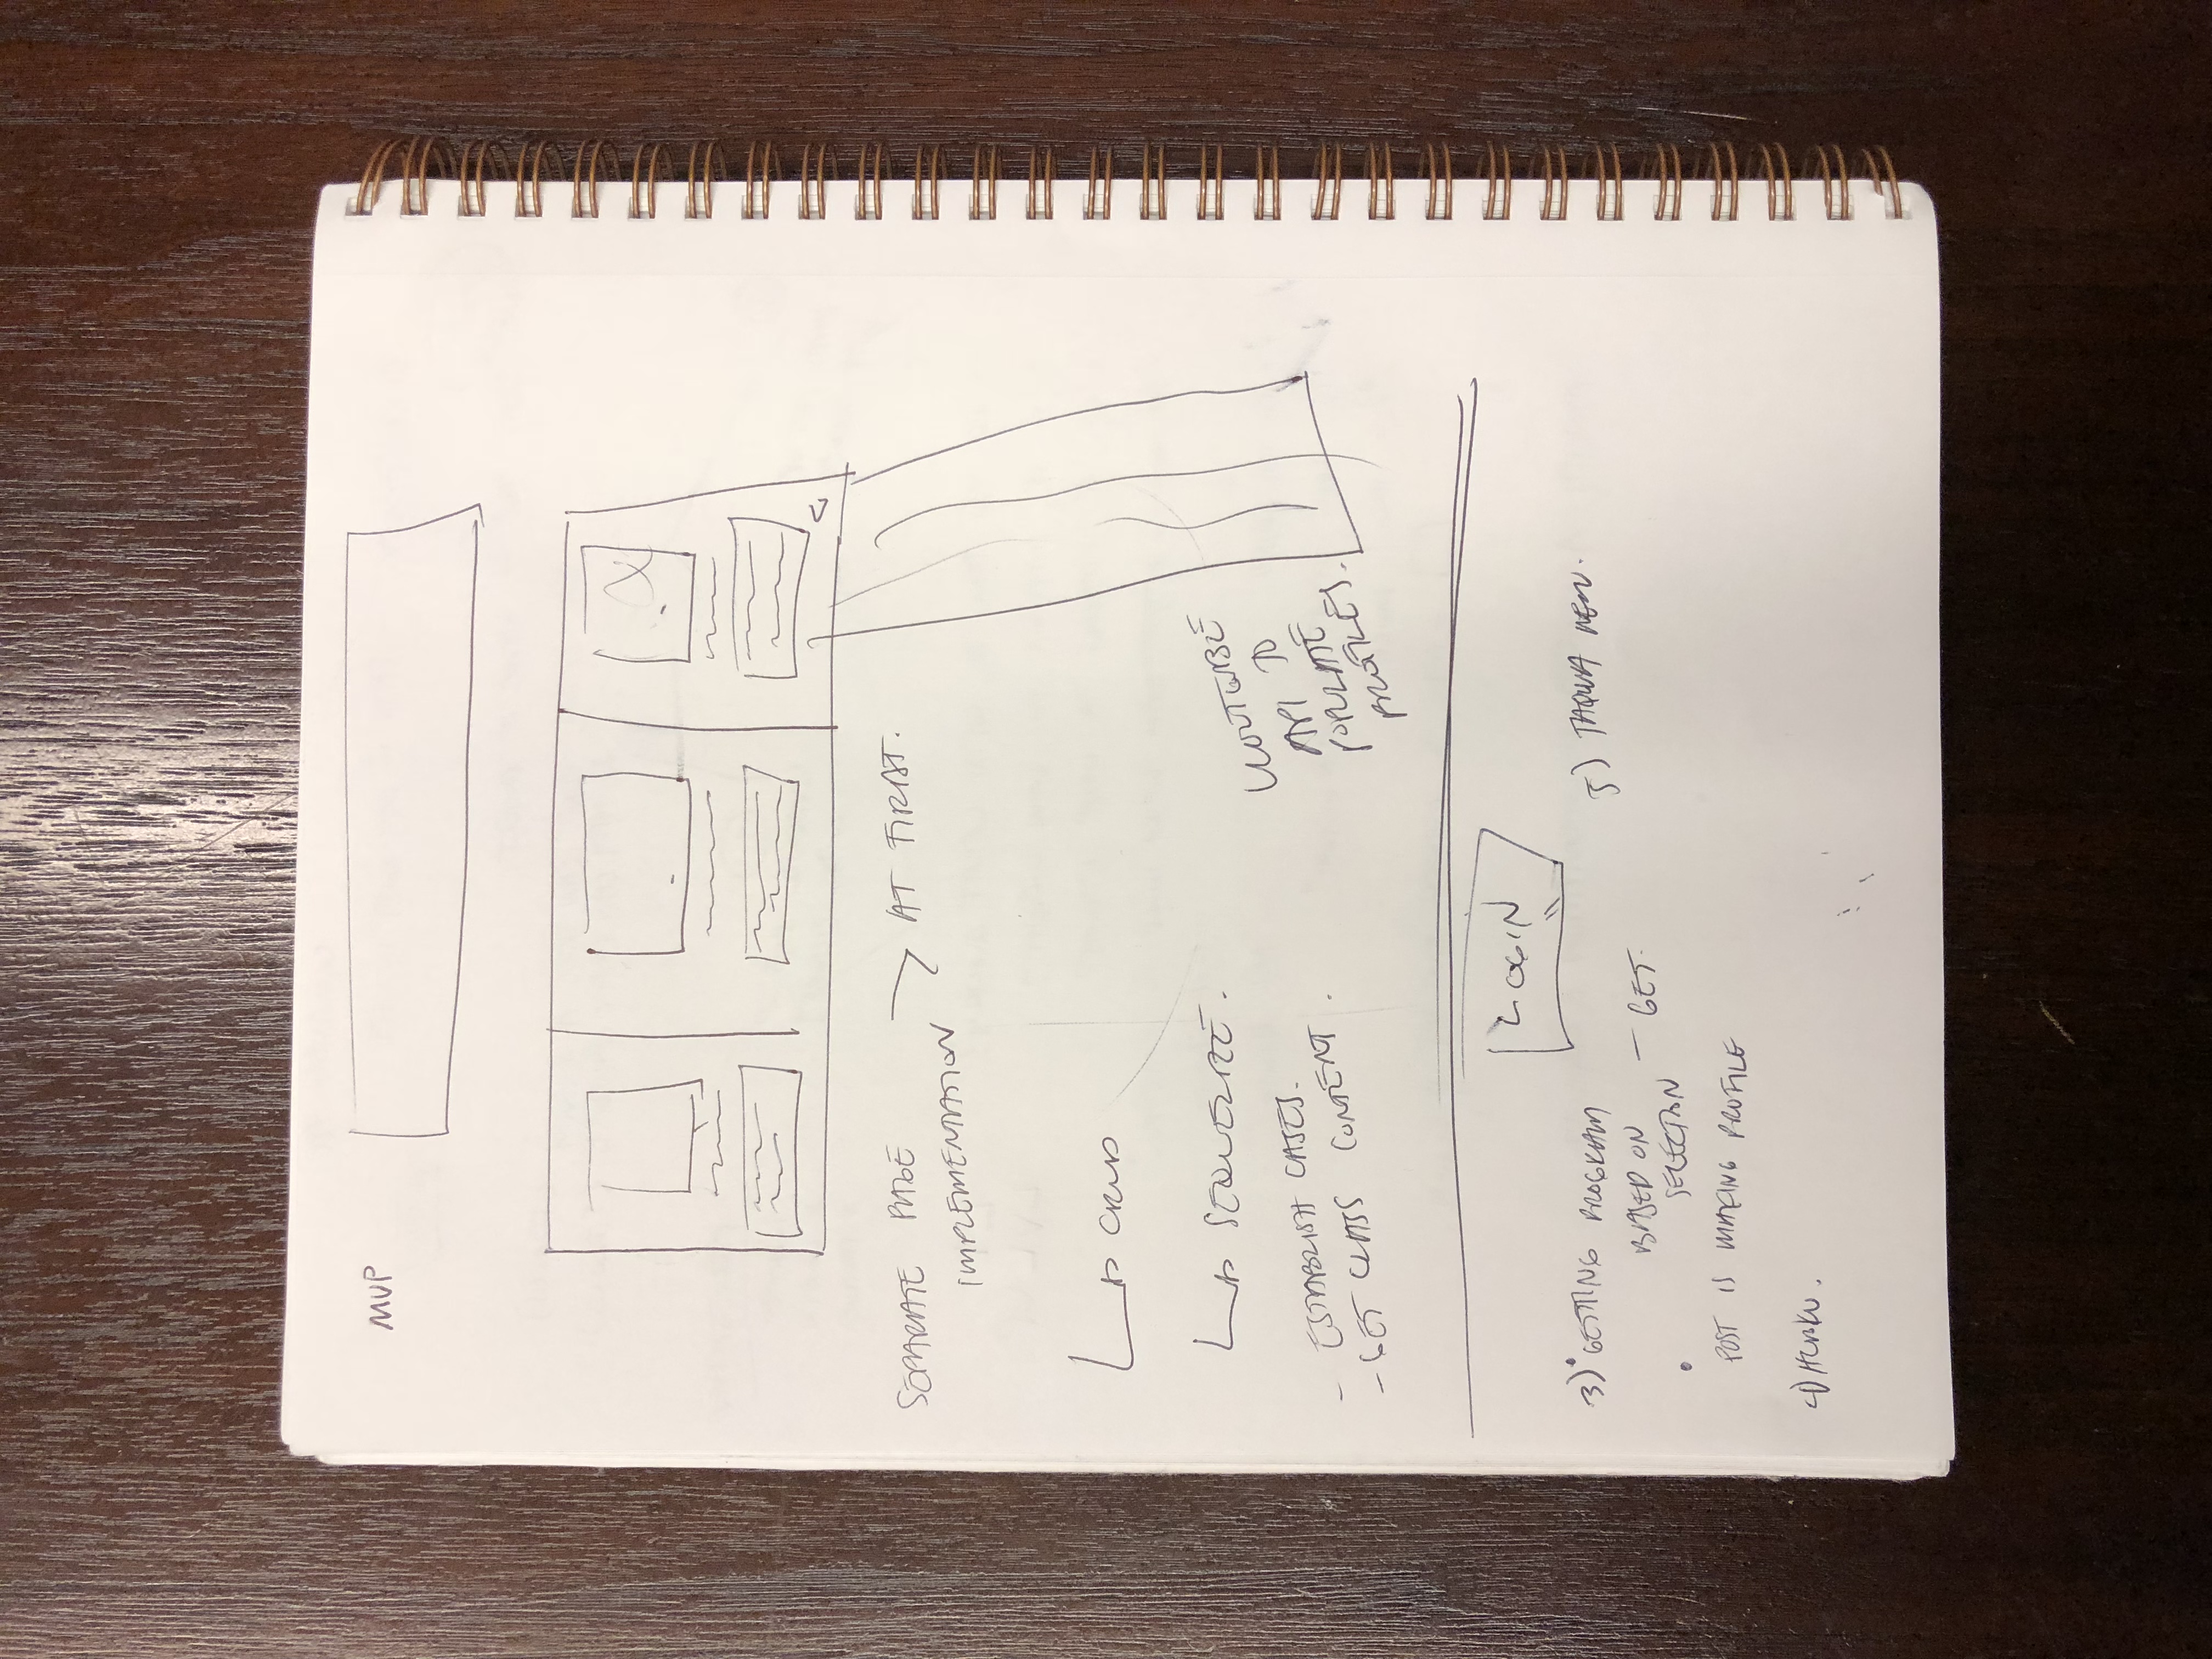 MVP
SEPARATE PAGE
IMPLEMENTATION
AT FIRST.
CRUD
SEQUELIZE.
- ESTABLISH CASES.
- GET CLASS CONTENT.
API TO
POPULATE
PROFILES.
LOGIN
3) GETTING PROGRAM
BASED ON
SELECTION - GET.
POST IS MAKING PROFILE
4) HEROKU.
5)